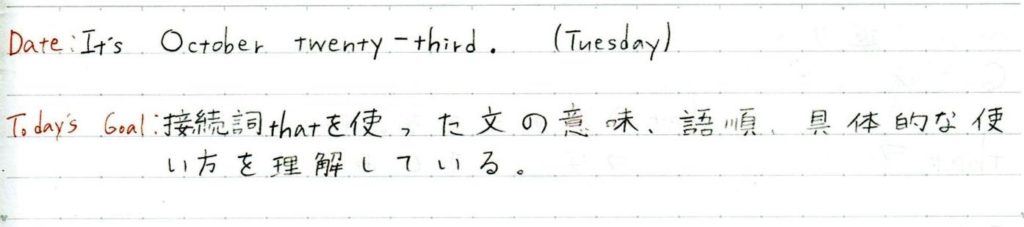 Date: It's October twenty-third. (Tuesday)
Today's Goal: 接続詞thatを使った文の意味、語順、具体的な使
い方を理解している。